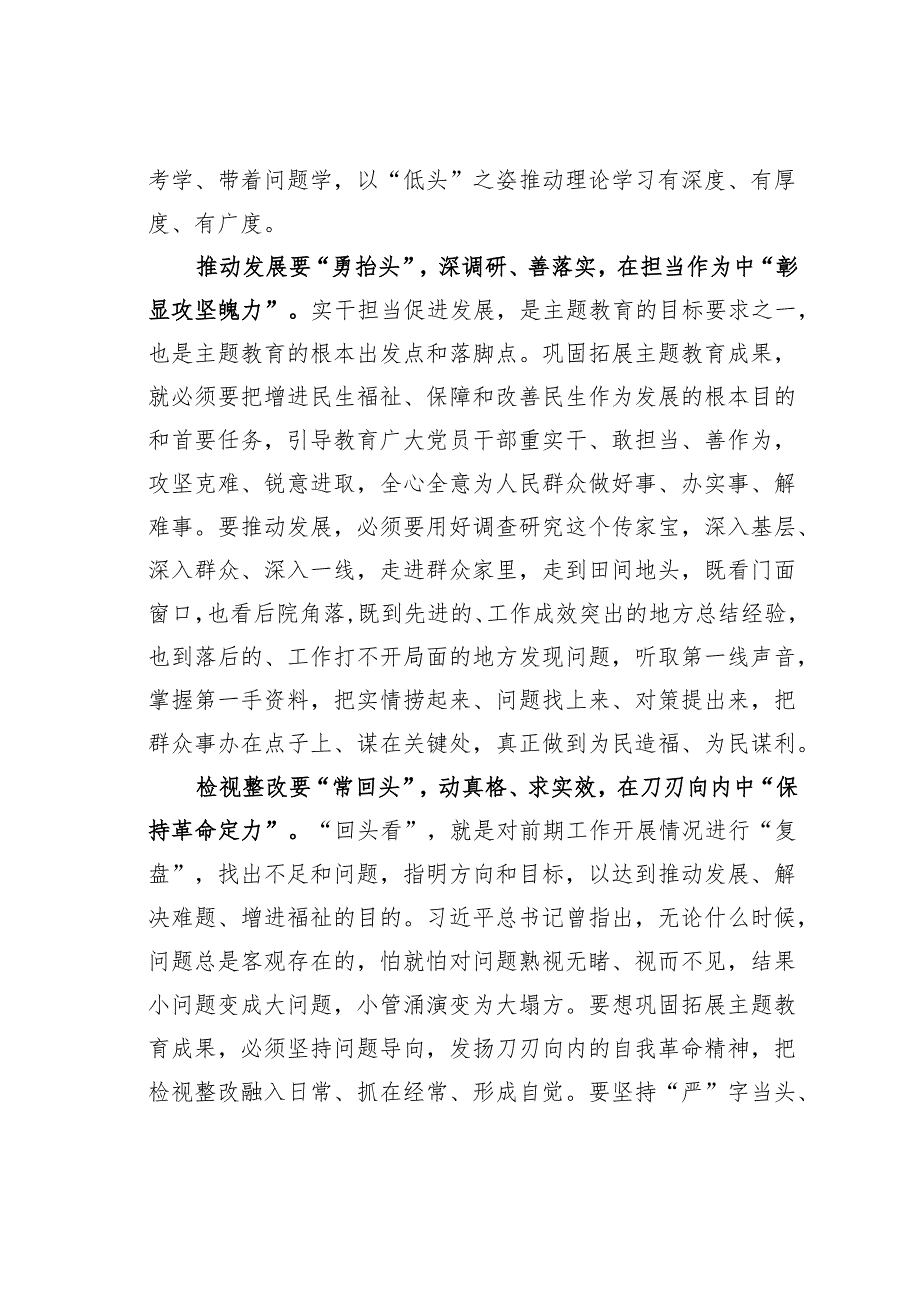 考学、带着问题学，以“低头”之姿推动理论学习有深度、有厚
度、有广度。
推动发展要“勇抬头”，深调研、善落实，在担当作为中“彰
显攻坚魄力”。实干担当促进发展，是主题教育的目标要求之一，
也是主题教育的根本出发点和落脚点。巩固拓展主题教育成果，
就必须要把增进民生福祉、保障和改善民生作为发展的根本目的
和首要任务，引导教育广大党员干部重实干、敢担当、善作为，
攻坚克难、锐意进取，全心全意为人民群众做好事、办实事、解
难事。要推动发展，必须要用好调查研究这个传家宝，深入基层、
深入群众、深入一线，走进群众家里，走到田间地头，既看门面
窗口,也看后院角落,既到先进的、工作成效突出的地方总结经验，
也到落后的、工作打不开局面的地方发现问题，听取第一线声音，
掌握第一手资料，把实情捞起来、问题找上来、对策提出来，把
群众事办在点子上、谋在关键处，真正做到为民造福、为民谋利。
检视整改要“常回头”，动真格、求实效，在刀刃向内中“保
持革命定力”。“回头看”，就是对前期工作开展情况进行“复
盘”，找出不足和问题，指明方向和目标，以达到推动发展、解
决难题、增进福祉的目的。习近平总书记曾指出，无论什么时候，
问题总是客观存在的，怕就怕对问题熟视无睹、视而不见，结果
小问题变成大问题，小管涌演变为大塌方。要想巩固拓展主题教
育成果，必须坚持问题导向，发扬刀刃向内的自我革命精神，把
检视整改融入日常、抓在经常、形成自觉。要坚持“严”字当头、